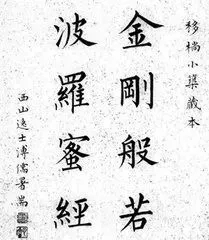 移橋小築藏本
金剛般若
波羅蜜經
西山逸士溥儒署耑